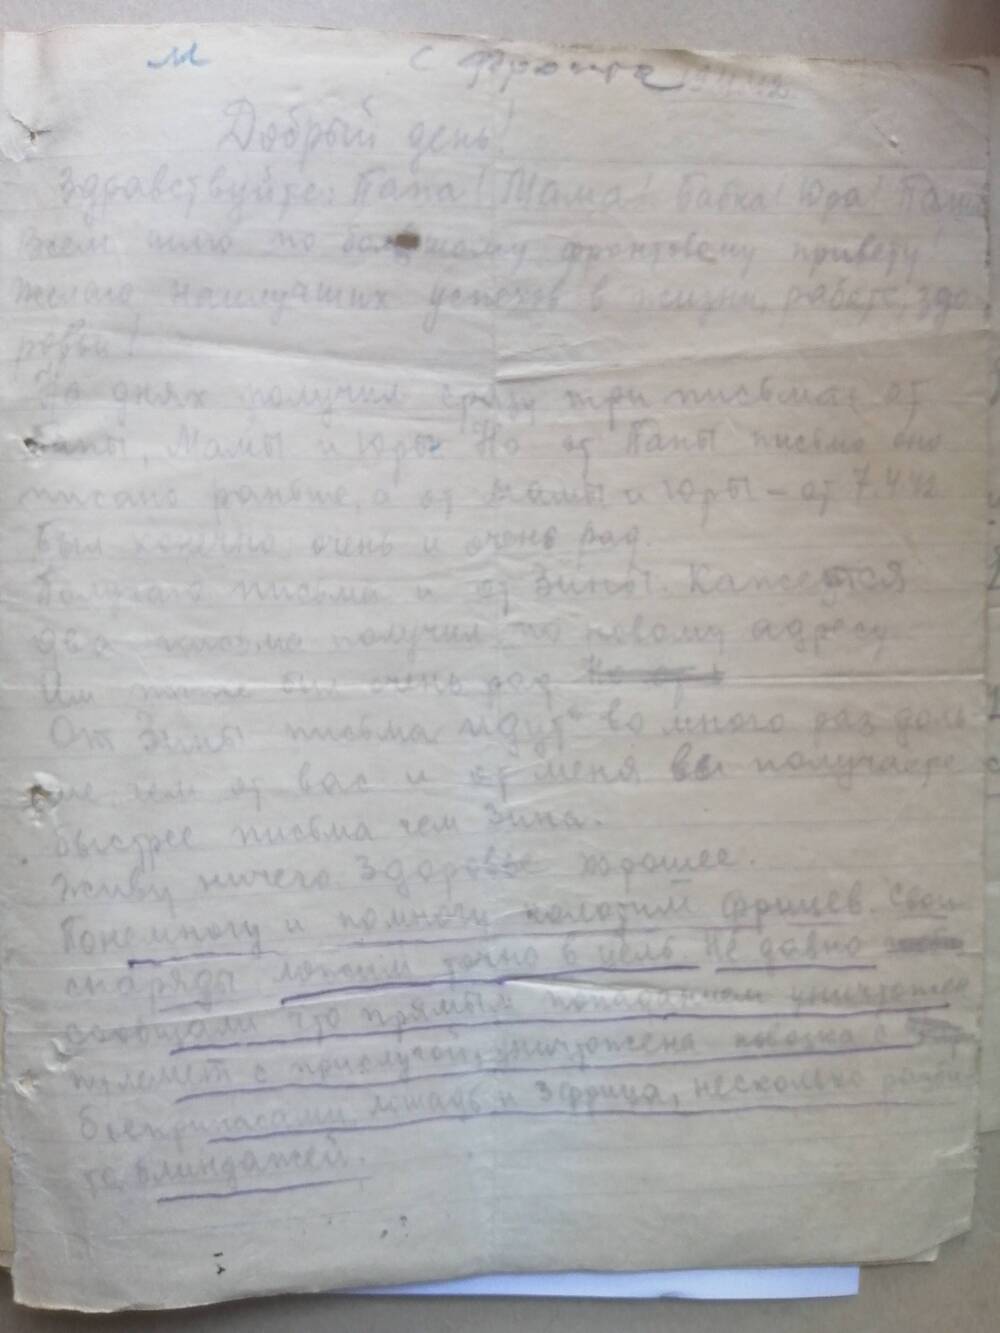 м
с фронта
Добрый день!
Здравствуйте: Папа! Мама! Бабка! Юра!
Всем шлю по большому фронтовому привету!
Желаю наилучших успехов в жизни, работе, здо
ровьи!
На днях получил сразу три письма: от
Папы, Мамы и Юры. Но от Папы письмо оно
писано раньше, а от Мамы и Юры – от 7.4.42
Был конечно очень и очень рад.
Получаю письма и от Зины. Кажется
два письма получил по новому адресу
Им также был очень рад
От Зины письма "идут" во много раз доль
ше чем от вас и от меня вы получаете
быстрее письма чем Зина.
Живу ничего. Здоровье хорошее.
Понемногу и помногу колотим фрицев. Свои
снаряды ложим точно в цель. Не давно
сообщали что прямым попаданием уничтожен
пулемет с прислугой, уничтожена повозка с
боеприпасами, лошадь и 3 фрица, несколько разби
то блиндажей.